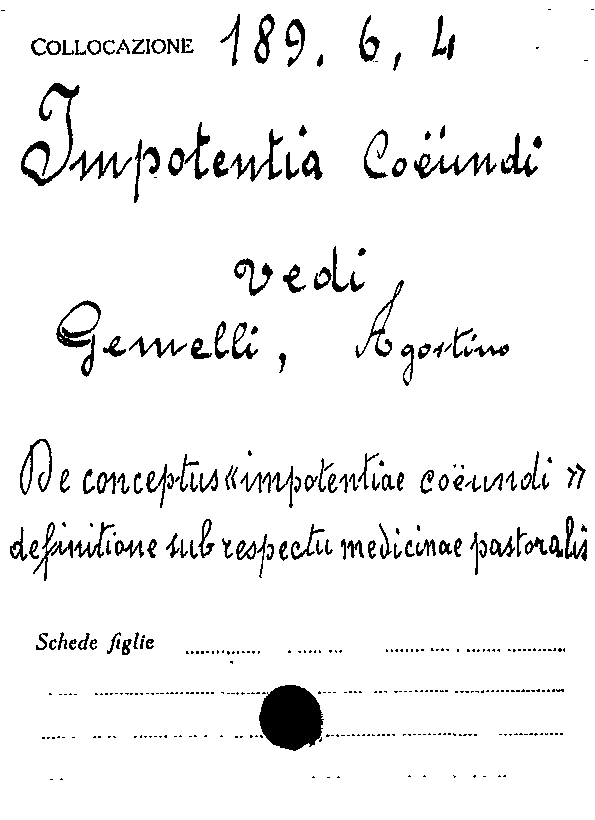 COLLOCAZIONE 189. 6, 4
Impotentia Coëundi
vedi
Gemelli, Agostino
De conceptus «impotentiae coëundi»
definitione sub respectu medicinae pastoralis
Schede figlie